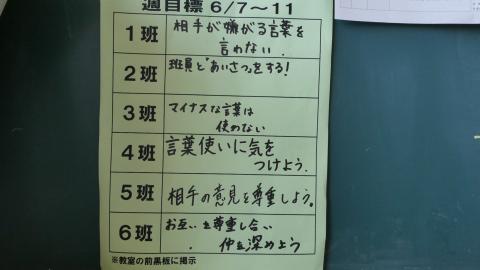 週目標 6/7～11
1班
相手が嫌がる言葉を
言わない.
2班
班員と「あいさつ」をする!
3班
マイナスな言葉は
使わない
4班
言葉使いに気を
つけよう.
5班
相手の意見を尊重しよう。
6班
お互いを尊重し合い
仲を深めよう
※教室の前黒板に掲示